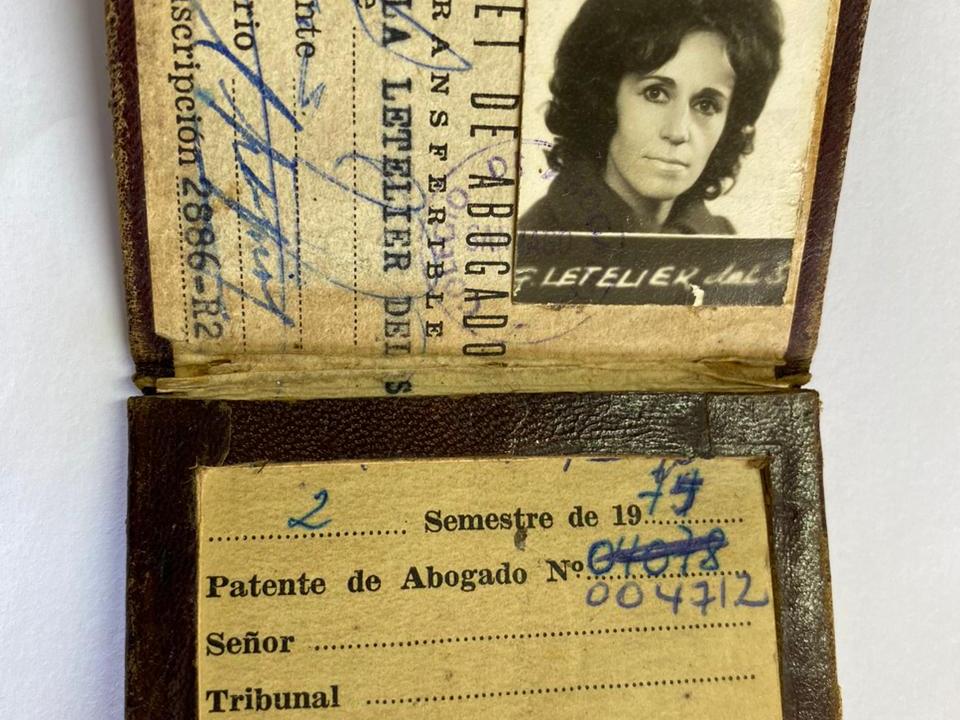 ET DE ABOGADO
RANSFERIBLE
LA LETELIER DEL S
e
nte
rio
scripción 2886-R2
LETELIER del S
2 Semestre de 19
Patente de Abogado Nº 04078
004712
Señor
Tribunal